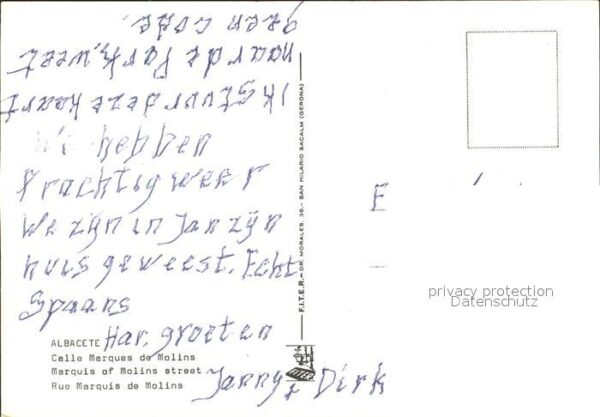 Wi hebben
Prachtig weer
We zijn in Jan zijn
huis geweest. Echt
Spaans
Har. groeten
Janny & Dirk
Ik Stuur deze kaart
naar de Park, weet
geen code
ALBACETE
Calle Marques de Molins
Marquis of Molins street
Rue Marquis de Molins
F.I.T.E.R.—DR. MORALES, 35 - SAN HILARIO SACALM (GERONA)
E
privacy protection
Datenschutz